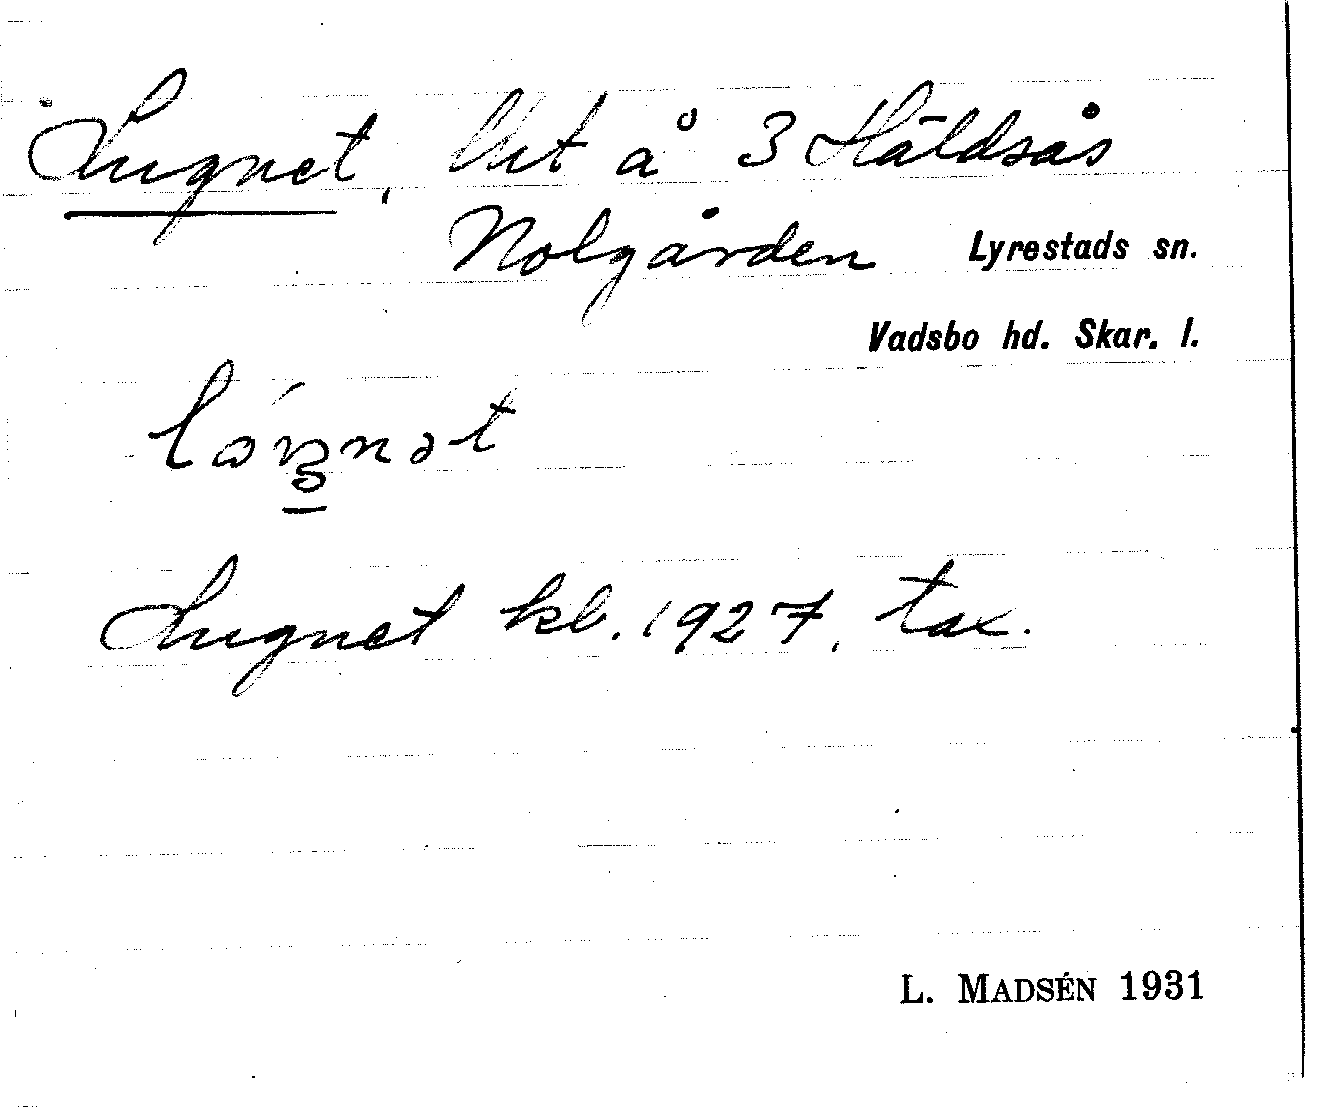 Lugnet, lht å 3 Häldsås
Nolgården Lyrestads sn.
Vadsbo hd. Skar. l.
Lugnet kl. 1927, tax.
L. MADSÉN 1931